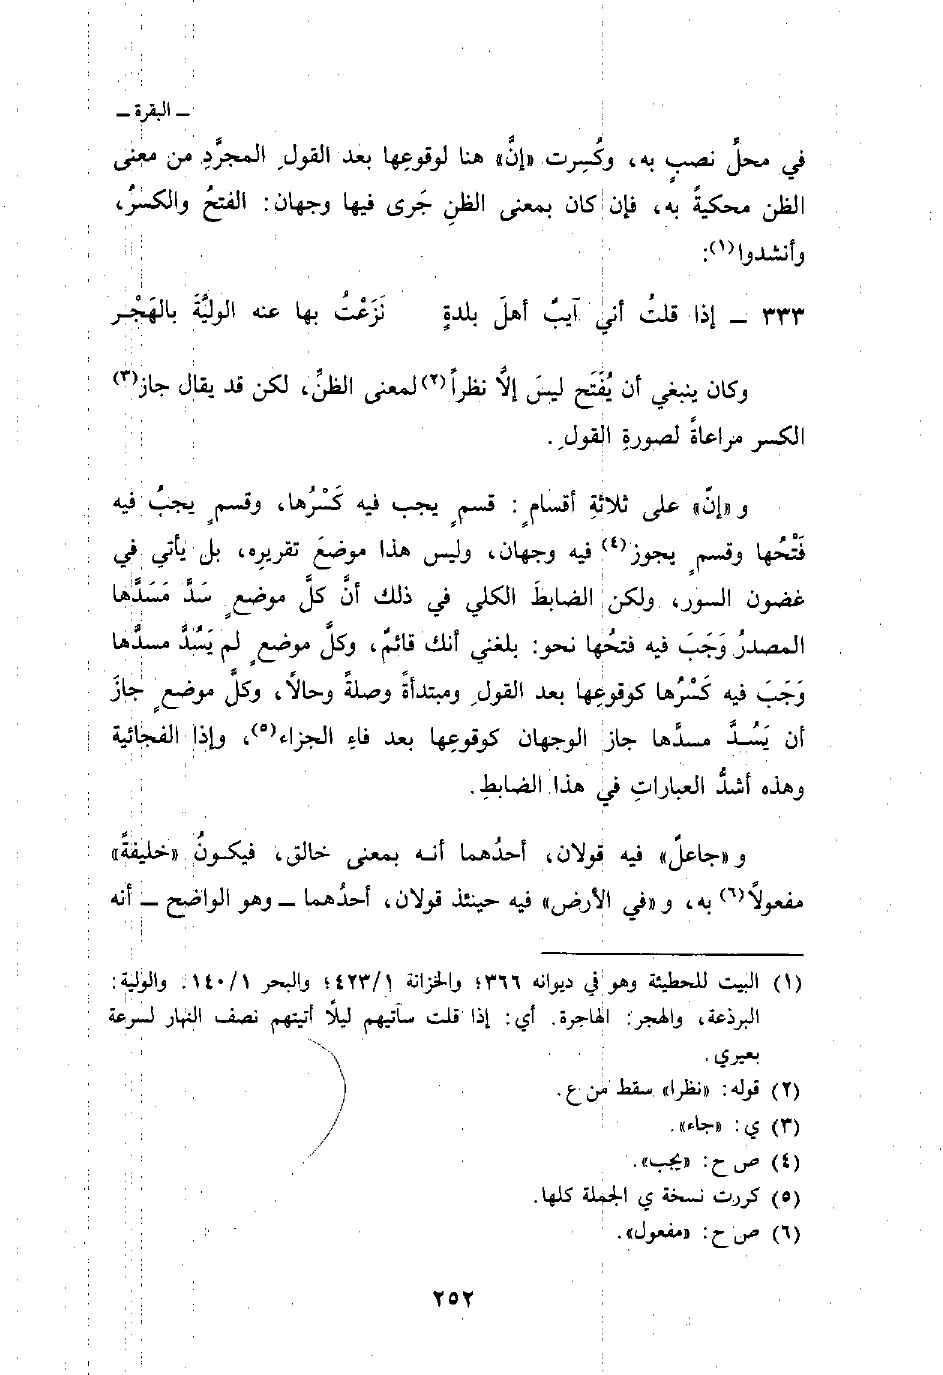 ــ البقرة ــ
في محلِّ نصبٍ به، وكُسِرت «إنَّ» هنا لوقوعها بعد القولِ المجرَّدِ من معنى
الظن محكيةً به، فإن كان بمعنى الظنِ جَرى فيها وجهان: الفتحُ والكسرُ،
وأنشدوا(١):
٣٣٣ ــ إذا قلتُ أني آيبٌ أهلَ بلدةٍ نَزَعْتُ بها عنه الوليَّةَ بالهَجْرِ
وكان ينبغي أن يُفْتَح ليسَ إلَّا نظراً(٢) لمعنى الظنِّ، لكن قد يقال جاز(٣)
الكسر مراعاةً لصورةِ القولِ.
و «إنّ» على ثلاثةِ أقسامٍ: قسمٍ يجب فيه كَسْرُها، وقسمٍ يجبُ فيه
فَتْحُها وقسمٍ يجوز(٤) فيه وجهان، وليس هذا موضعَ تقريرِه، بل يأتي في
غضون السور، ولكن الضابطَ الكلي في ذلك أنَّ كلَّ موضعٍ سَدَّ مَسَدَّها
المصدرُ وَجَبَ فيه فتحُها نحو: بلغني أنك قائمٌ، وكلَّ موضعٍ لم يَسُدَّ مسدَّها
وَجَبَ فيه كَسْرُها كوقوعِها بعد القولِ ومبتدأةً وصلةً وحالًا، وكلَّ موضعٍ جازَ
أن يَسُدَّ مسدَّها جاز الوجهان كوقوعِها بعد فاءِ الجزاء(٥)، وإذا الفجائية
وهذه أشدُّ العبارات في هذا الضابطِ.
و «جاعلٌ» فيه قولان، أحدُهما أنه بمعنى خالق، فيكونُ «خليفةً»
مفعولًا(٦) به، و «في الأرض» فيه حينئذ قولان، أحدُهما ــ وهو الواضح ــ أنه
(١) البيت للحطيئة وهو في ديوانه ٣٦٦؛ والخزانة ٤٢٣/١؛ والبحر ١٤٠/١. والولية:
البرذعة، والهجر: الهاجرة. أي: إذا قلت سآتيهم ليلًا أتيتهم نصف النهار لسرعة
بعيري.
(٢) قوله: «نظرا» سقط من ع.
(٣) ي: «جاء».
(٤) ص ح: «يجب».
(٥) كررت نسخة ي الجملة كلها.
(٦) ص ح: «مفعول».
٢٥٢